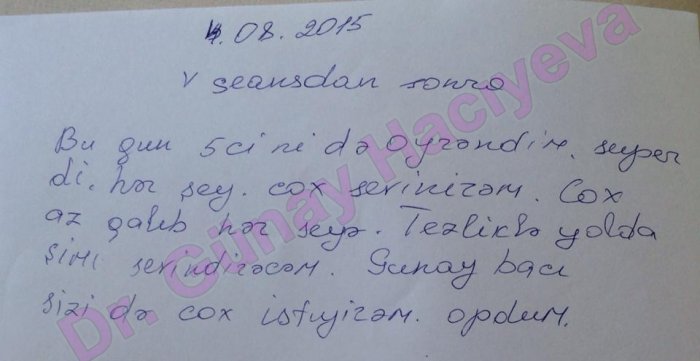 4.08.2015
V seansdan sonra
Bu gun 5ci ni də oyrəndim. super
di. hər şey. cox sevinirəm. Cox
az qalıb hər şeyə. Tezliklə yolda
şımı sevindirəcəm. Gunay bacı
sizi də cox istiyirəm. opdum.
Dr. Günay Hacıyeva